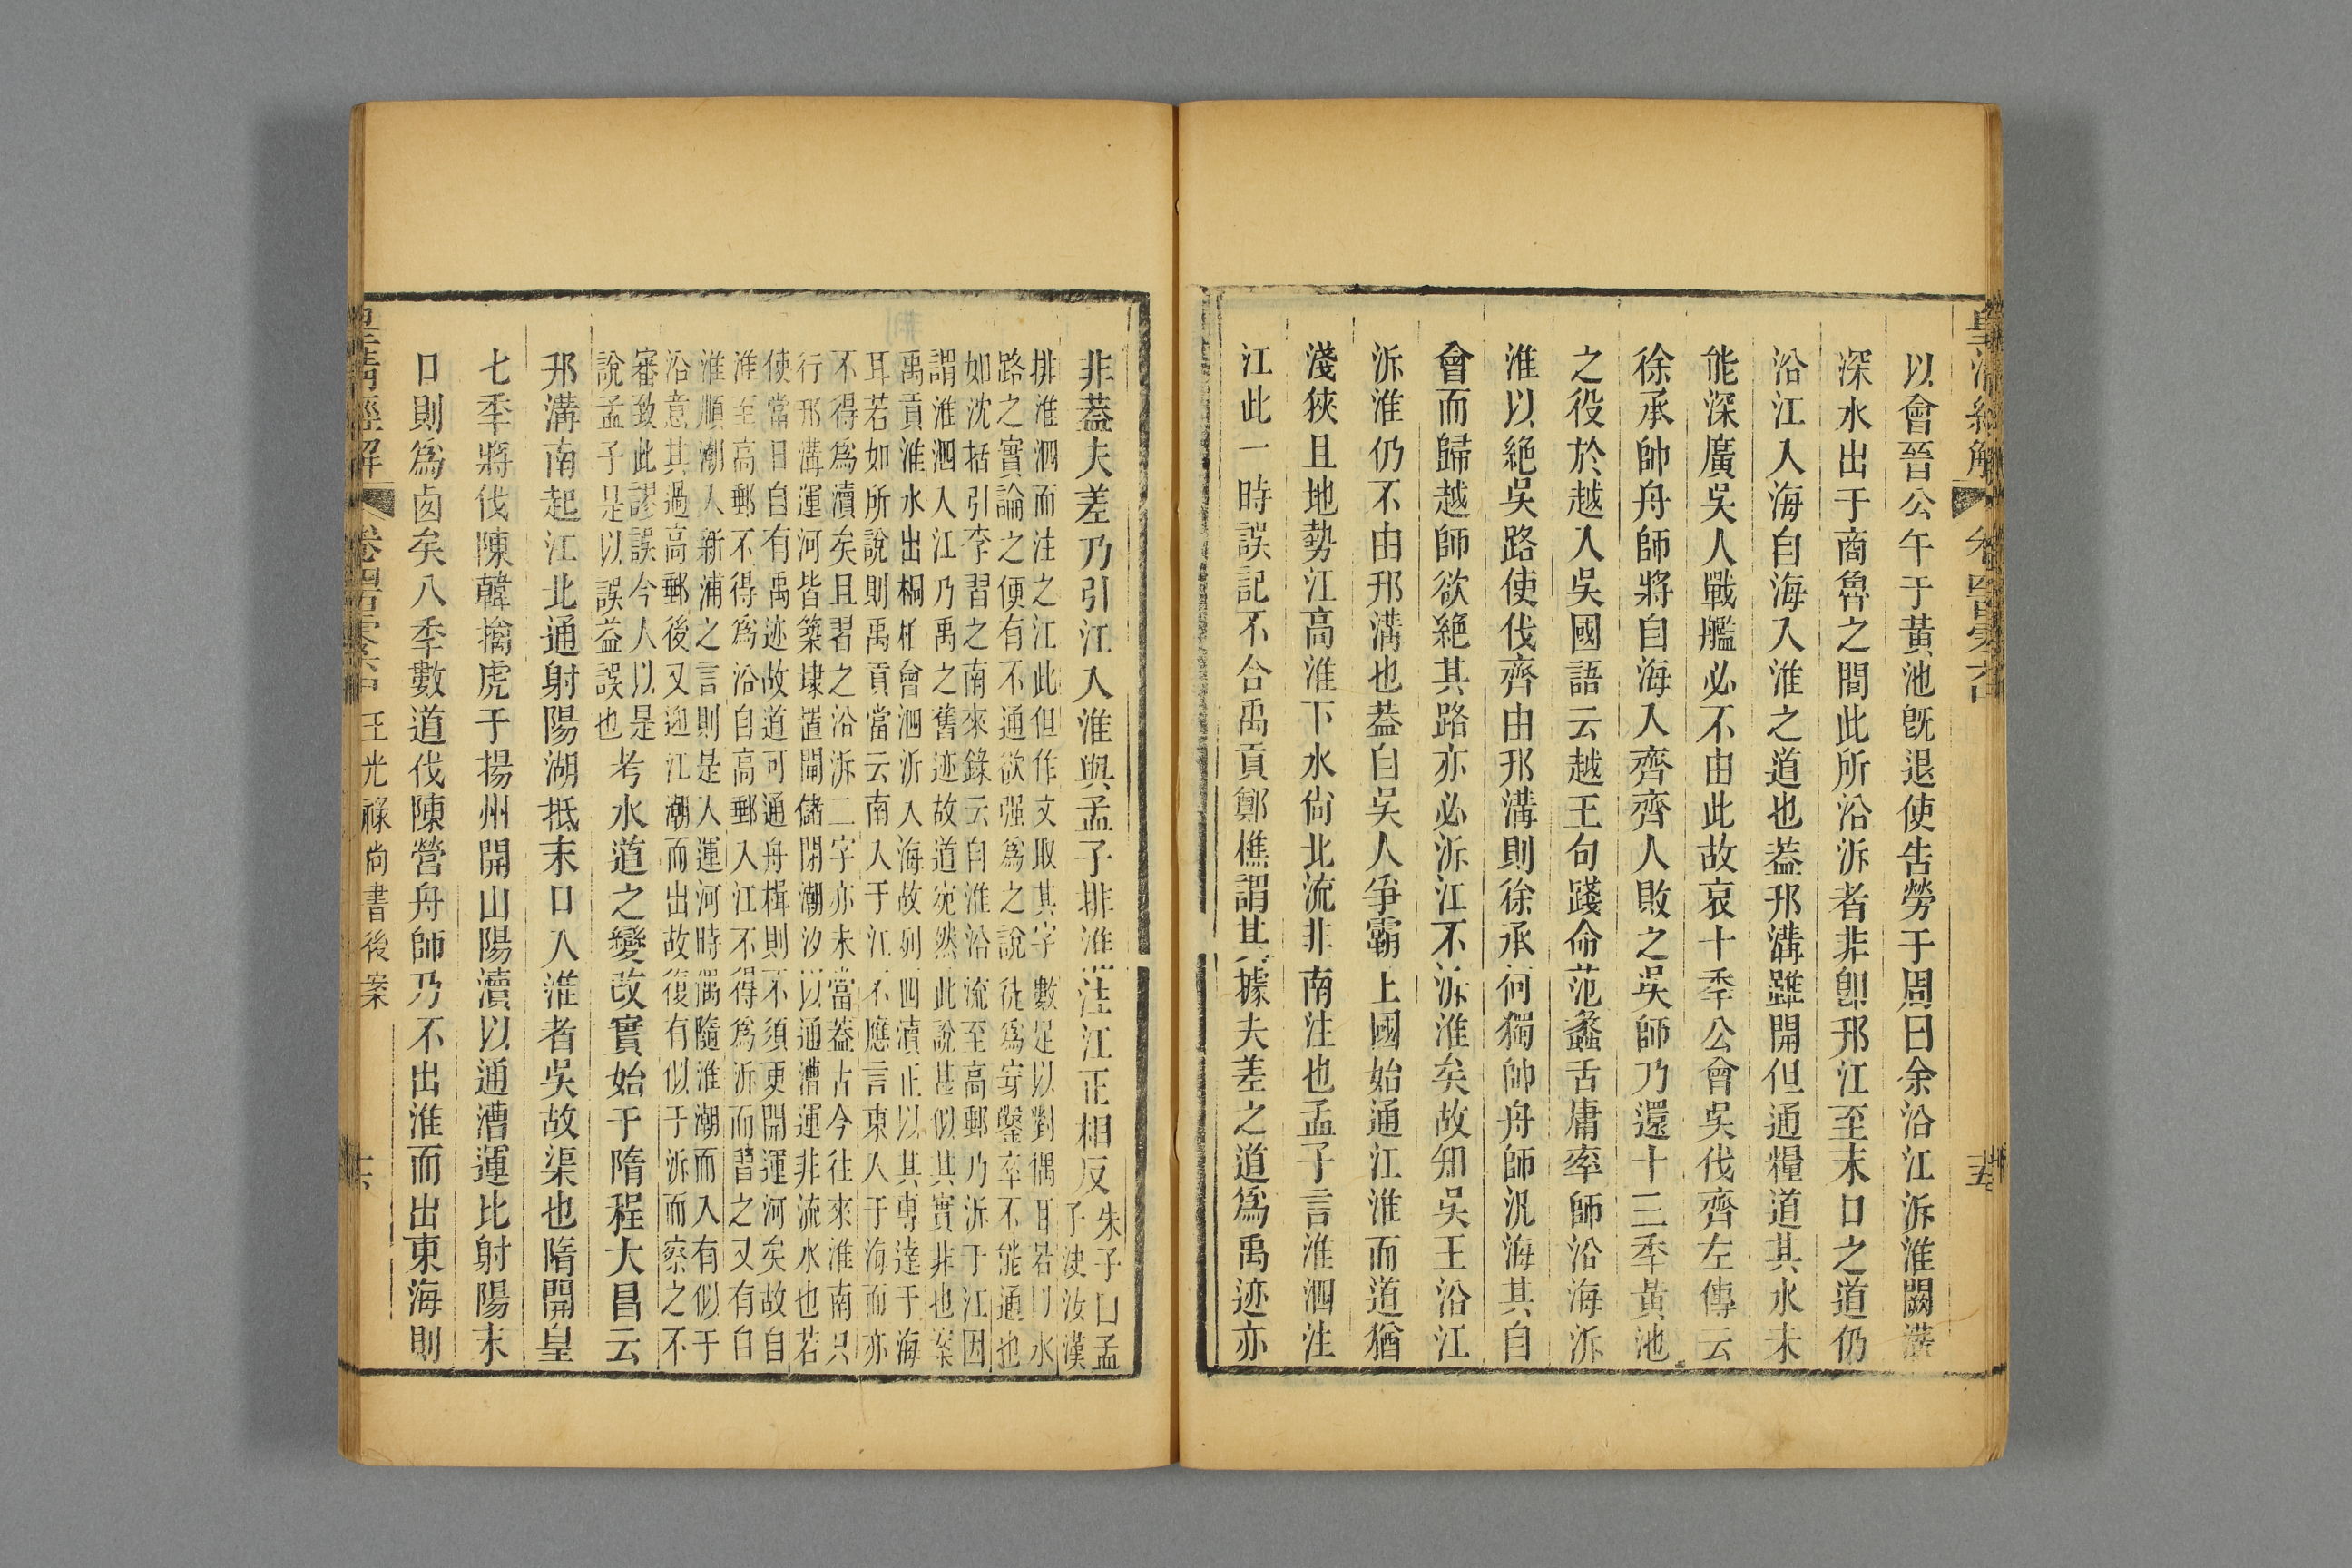 以會晉公午于黃池旣退使告勞于周曰余沿江泝淮闕溝
深水出于商魯之間此所沿泝者非卽邗江至末口之道仍
沿江入海自海入淮之道也葢邗溝雖開但通糧道其水未
能深廣吳人戰艦必不由此故哀十秊公會吳伐齊左傳云
徐承帥舟師將自海入齊齊人敗之吳師乃還十三秊黃池
之役於越入吳國語云越王句踐命范蠡舌庸率師沿海泝
淮以絕吳路使伐齊由邗溝則徐承何獨帥舟師汎海其自
會而歸越師欲絕其路亦必泝江不泝淮矣故知吳王沿江
泝淮仍不由邗溝也葢自吳人爭霸上國始通江淮而道猶
淺狹且地勢江高淮下水尙北流非南注也孟子言淮泗注
江此一時誤記不合禹貢鄭樵謂其據夫差之道爲禹迹亦
非葢夫差乃引江入淮與孟子排淮注江正相反
朱子曰孟
子決汝漢
排淮泗而注之江此但作文取其字數足以對偶耳若以水
路之實論之便有不通欲强爲之說徒爲穿鑿卒不能通也
如沈括引李習之南來錄云自淮沿流至高郵乃泝于江因
謂淮泗入江乃禹之舊迹故道宛然此說甚似其實非也案
禹貢淮水出桐柏會泗沂入海故列四瀆正以其專達于海
耳若如所說則禹貢當云南入于江不應言東入于海而亦
不得爲瀆矣且習之沿泝二字亦未當葢古今往來淮南只
行邗溝運河皆築埭置閘儲閉潮汐以通漕運非流水也若
使當日自有禹迹故道可通舟楫則不須更開運河矣故自
淮至高郵不得爲沿自高郵入江不得爲泝而習之又有自
淮順潮入新浦之言則是入運河時偶隨淮潮而入有似于
沿意其過高郵後又迎江潮而出故復有似于泝而察之不
審致此謬誤今人以是
說孟子是以誤益誤也
考水道之變改實始于隋程大昌云
邗溝南起江北通射陽湖抵末口入淮者吳故渠也隋開皇
七秊將伐陳韓擒虎于揚州開山陽瀆以通漕運比射陽末
口則爲卤矣八秊數道伐陳營舟師乃不出淮而出東海則
皇清經解
王光祿尚書後案